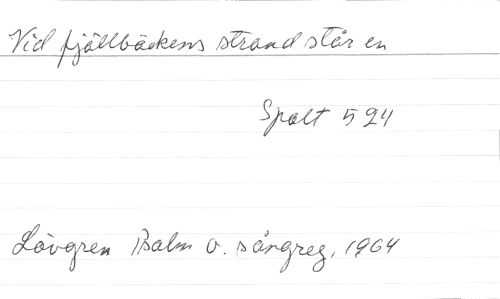 Vid fjällbäckens strand står en
Spalt 524
Lövgren Psalm o. sångreg, 1964